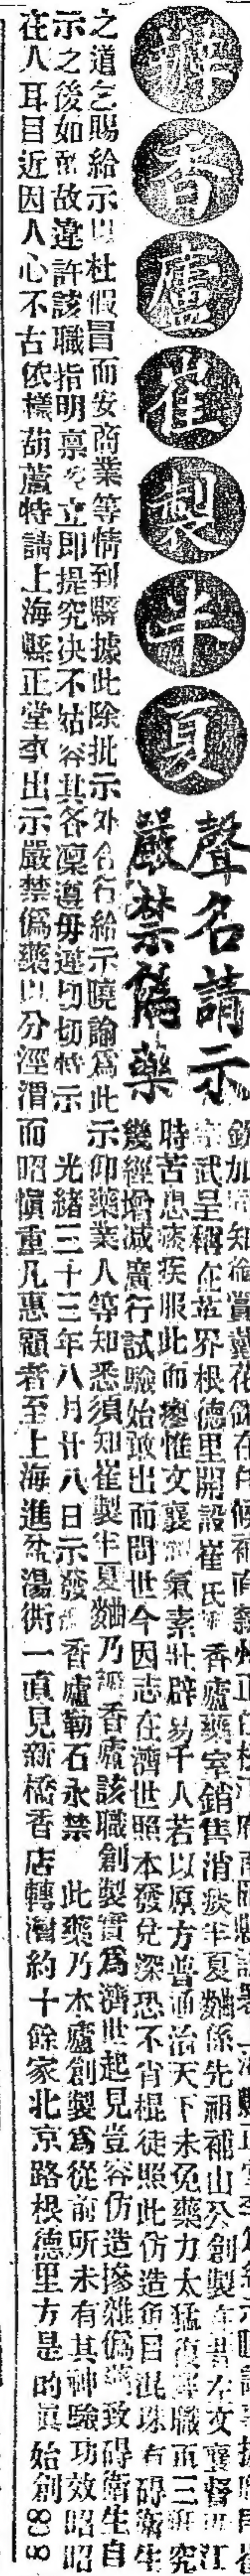 瓣香廬崔製半夏
聲名請示
嚴禁偽藥
欽加 知 賞戴花翎在
武呈稱在英界根德里開設崔氏 香廬藥室銷售消痰半夏麯係先祖補山公創製在昔左文襄督 江
時苦患痰疾服此而瘳惟文襄 氣素壯辟易千人若以原方普通治天下未免藥力太猛復經職再三研究
幾經增减廣行試驗始敢出而問世今因志在濟世照本發兌深恐不肖棍徒照此仿造魚目混珠有碍衛生
之道乞賜給示以杜假冒而安商業等情到縣據此除批示外合行給示曉諭為此示仰藥業人等知悉須知崔製半夏麯乃 香廬該職創製實為濟世起見豈容仿造摻雜偽藥致碍衛生自
示之後如 故違許該職指明稟 立即提究決不姑容其各凜遵毋違切切特示 光緒三十三年八月廿八日示發 香廬勒石永禁 此藥乃本廬創製為從前所未有其神驗功效昭昭
在人耳目近因人心不古依樣葫蘆特請上海縣正堂李出示嚴禁偽藥以分涇渭而昭慎重凡惠顧者至上海進盆湯衖一直見新橋香店轉灣約十餘家北京路根德里方是的真始創 808